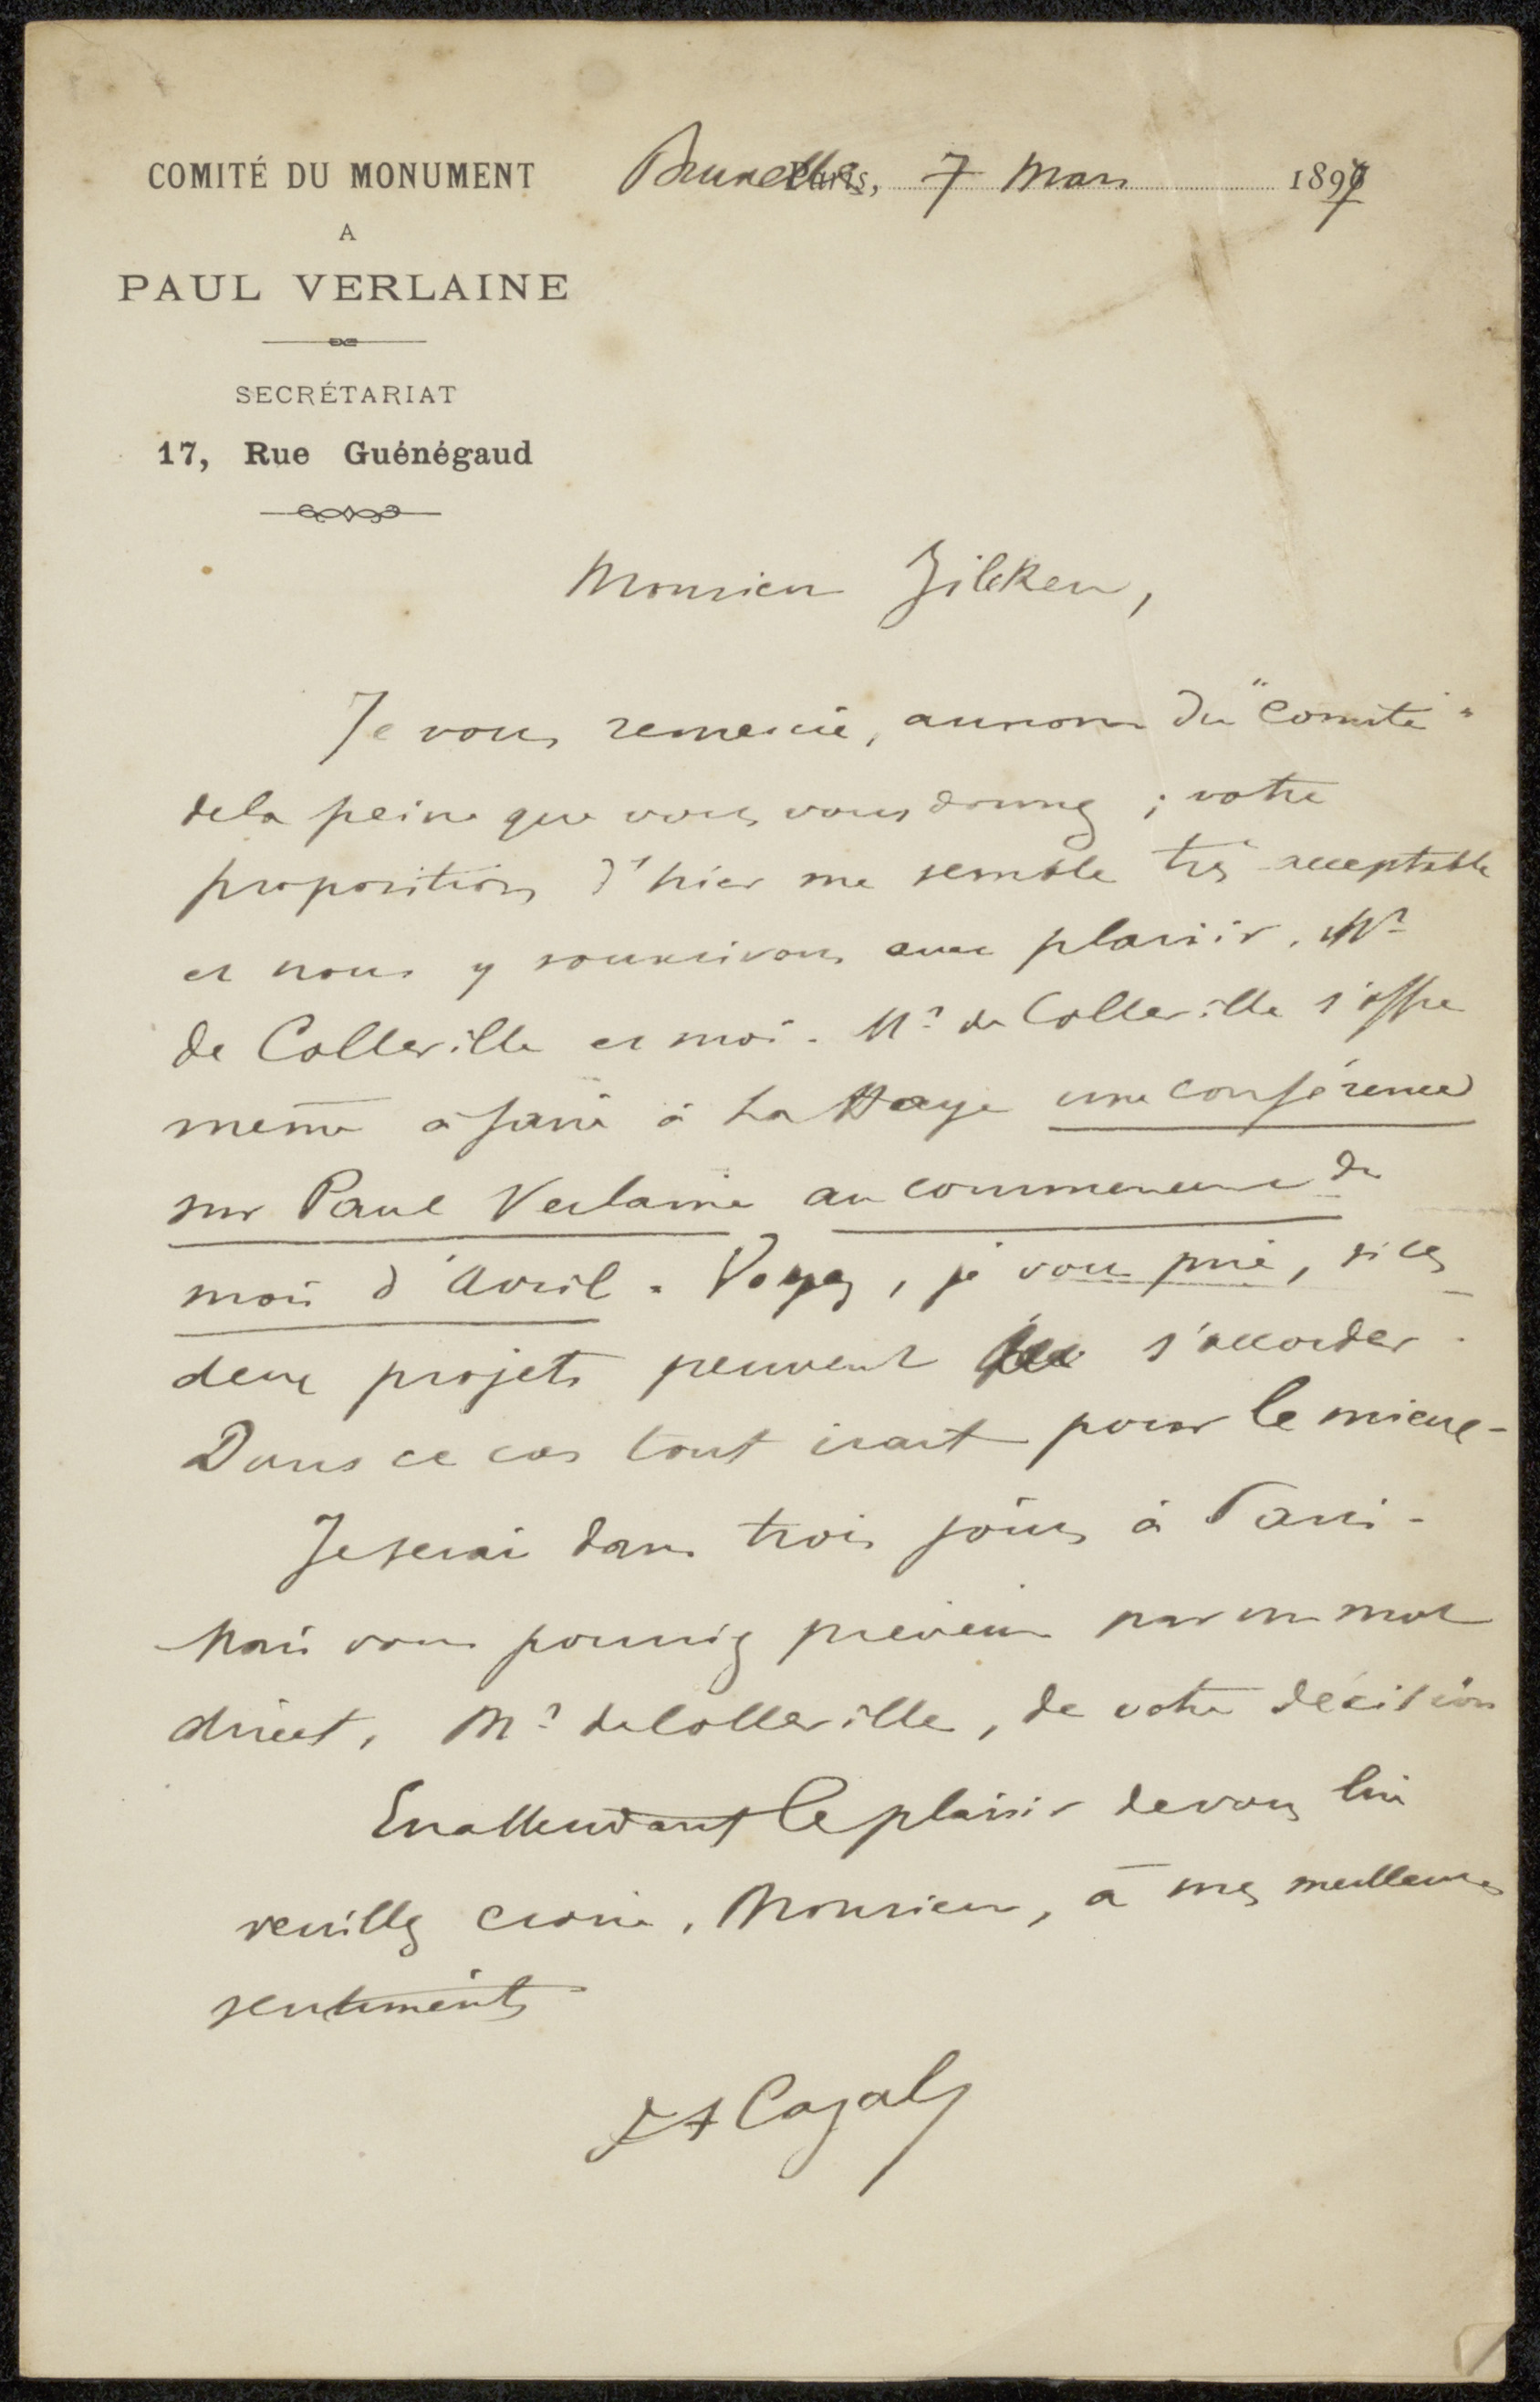 COMITÉ DU MONUMENT
A
PAUL VERLAINE
SECRÉTARIAT
17, Rue Guénégaud
Bruxelles, 7 Mars 1897
Monsieur Zilcken,
Je vous remercie, au nom du "Comité"
de la peine que vous vous donnez ; votre
proposition d'hier me semble très acceptable
et nous y souscrivons avec plaisir, Mr
de Colleville et moi. Mr de Colleville s'offre
même à faire à La Haye une conférence
sur Paul Verlaine au commencement du
mois d'Avril. Voyez, je vous prie, si ces
deux projets peuvent s'accorder.
Dans ce cas tout irait pour le mieux.
Je serai dans trois jours à Paris.
Mais vous pourriez prévenir par un mot
direct, Mr de Colleville, de votre décision
En attendant le plaisir de vous lire
veuillez croire, Monsieur, à mes meilleurs
sentiments
FA Cazals